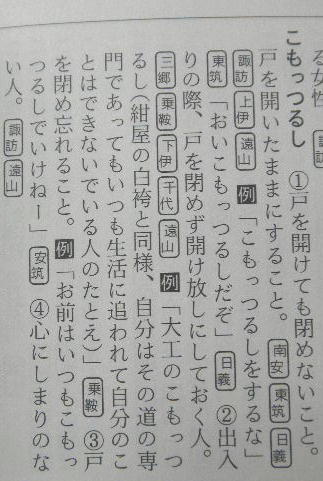 る女性
こもっつるし ①戸を開けても閉めないこと。
戸を開いたままにすること。 南安 東筑 日義
諏訪 上伊 遠山 例「こもっつるしをするな」
東筑「おいこもっつるしだぞ」 日義 ②出入
りの際、戸を閉めず開け放しにしておく人。
三郷 乗鞍 下伊 千代 遠山 例「大工のこもっつ
るし（紺屋の白袴と同様、自分はその道の専
門であってもいつも生活に追われて自分のこ
とはできないでいる人のたとえ）」 乗鞍 ③戸
を閉め忘れること。例「お前はいつもこもっ
つるしでいけねー」 安筑 ④心にしまりのな
い人。 諏訪 遠山